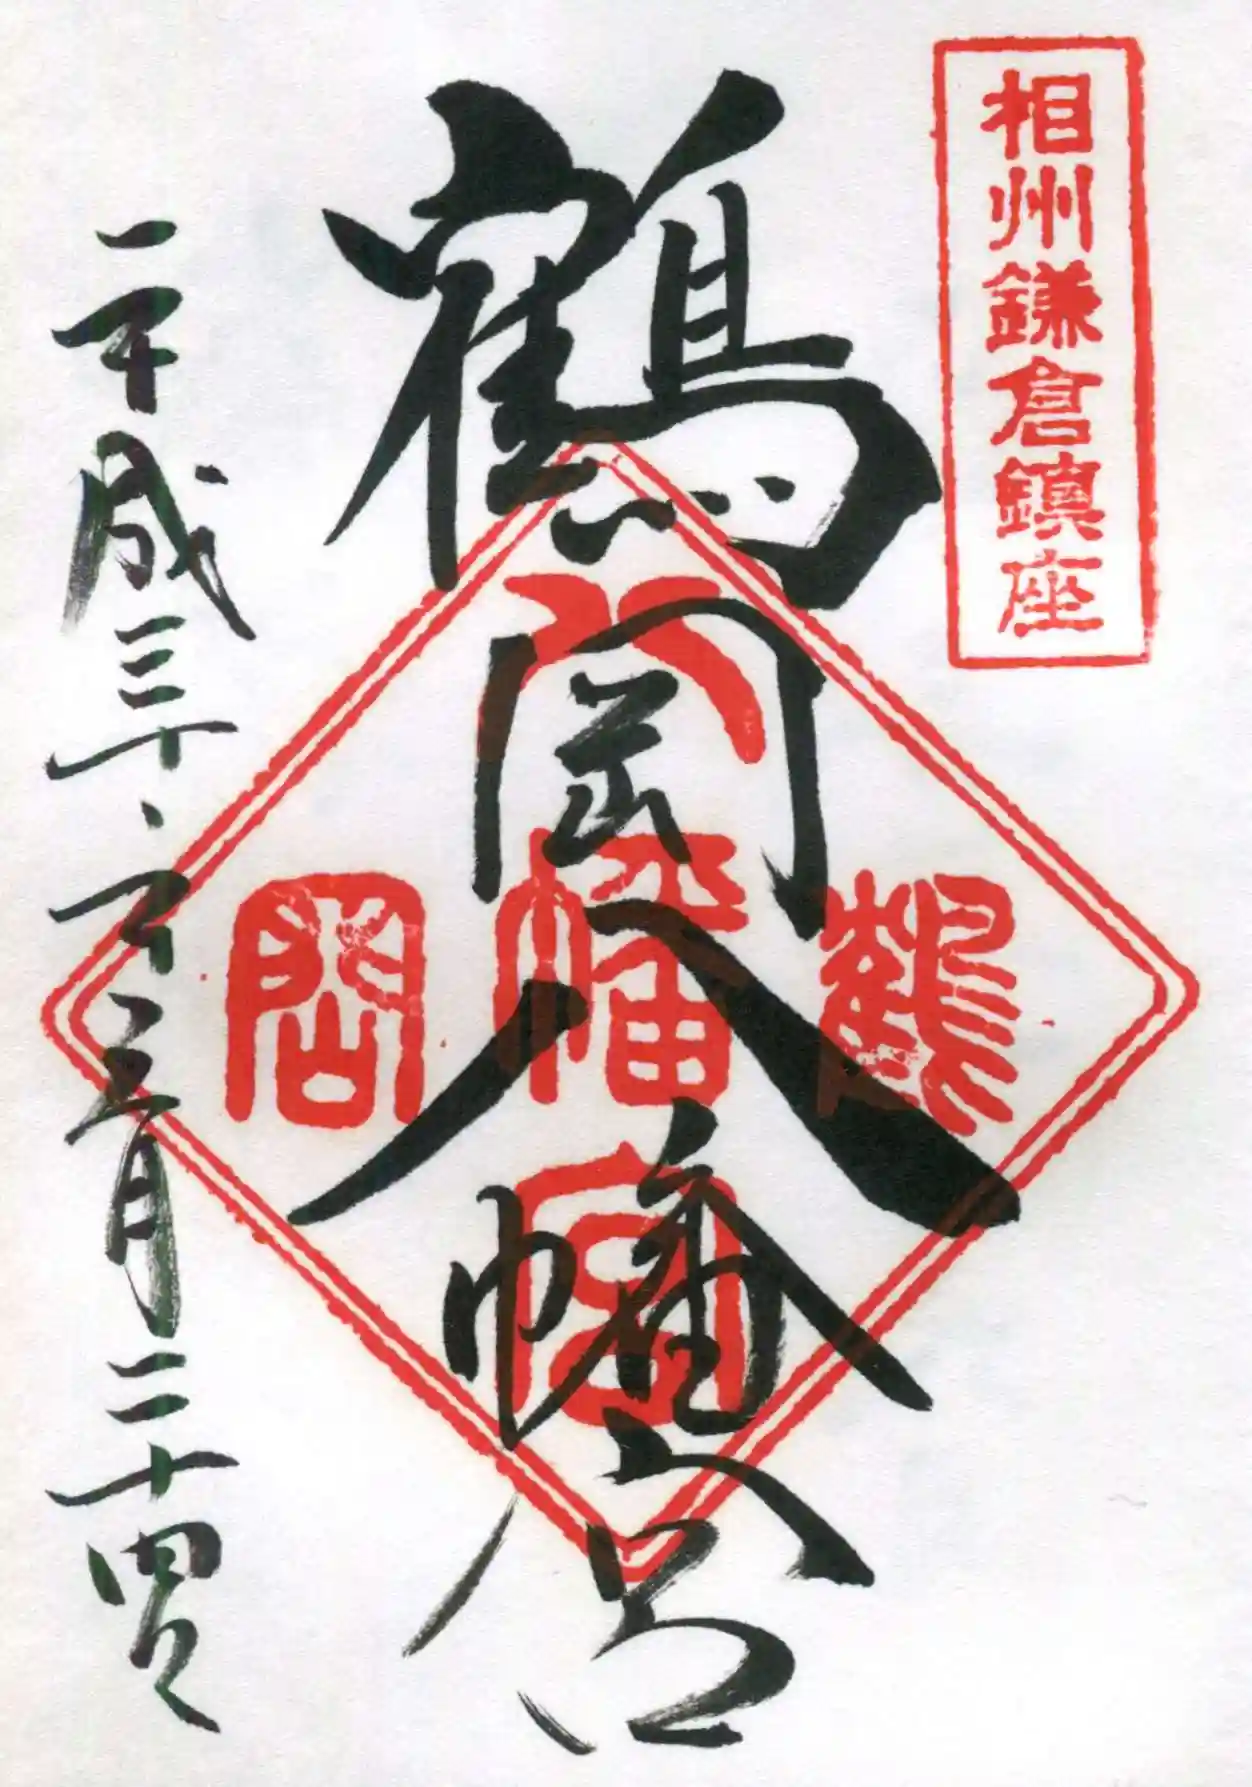 相州鎌倉鎮座
鶴岡八幡宮
鶴岡八幡宮
平成三十年三月二十四日